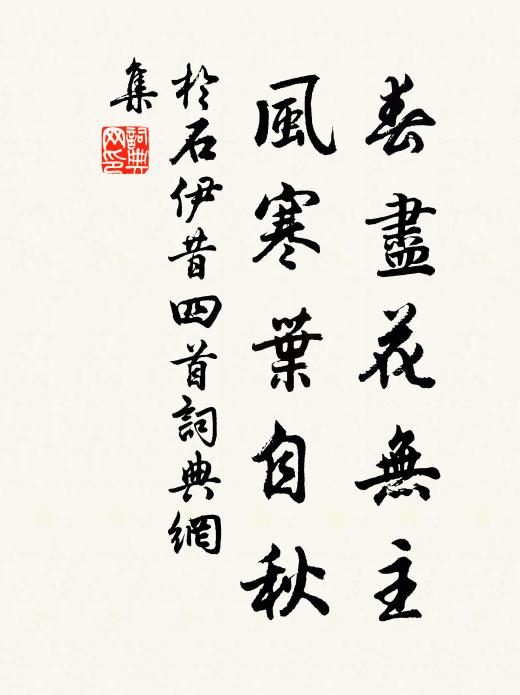 春盡花無主
風寒葉自秋
於石伊昔四首詞典網
集
詞典
网印